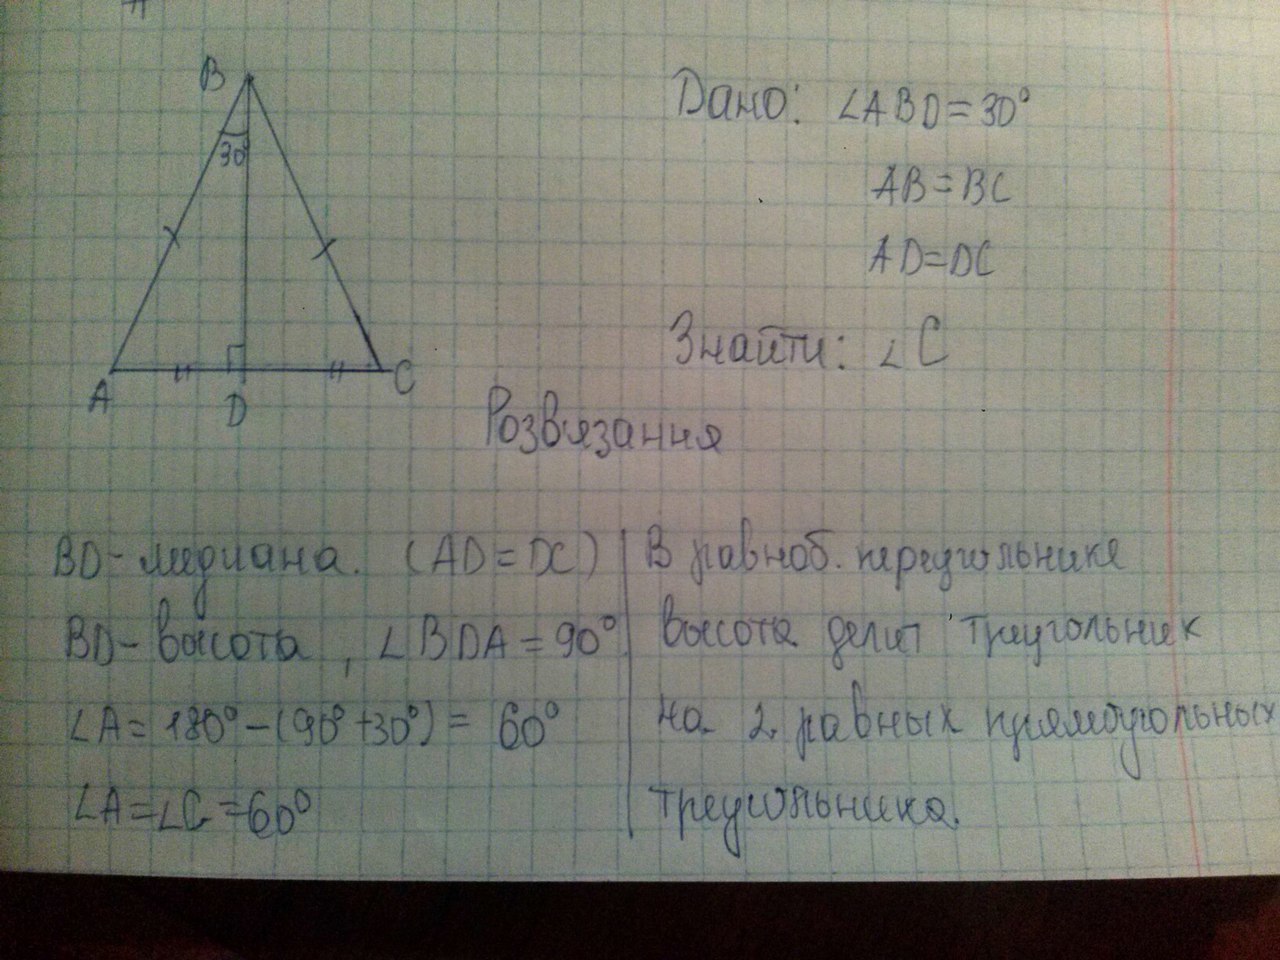 B
30
A
D
C
Дано: ∠ABD=30°
AB=BC
AD=DC
Знайти: ∠C
Розв'язання
BD-медиана. (AD=DC)
BD-высота, ∠BDA=90°
∠A=180°-(90°+30°)=60°
∠A=∠C=60°
В равноб. треугольнике
высота делит треугольник
на 2 равных прямоугольных
треугольника.